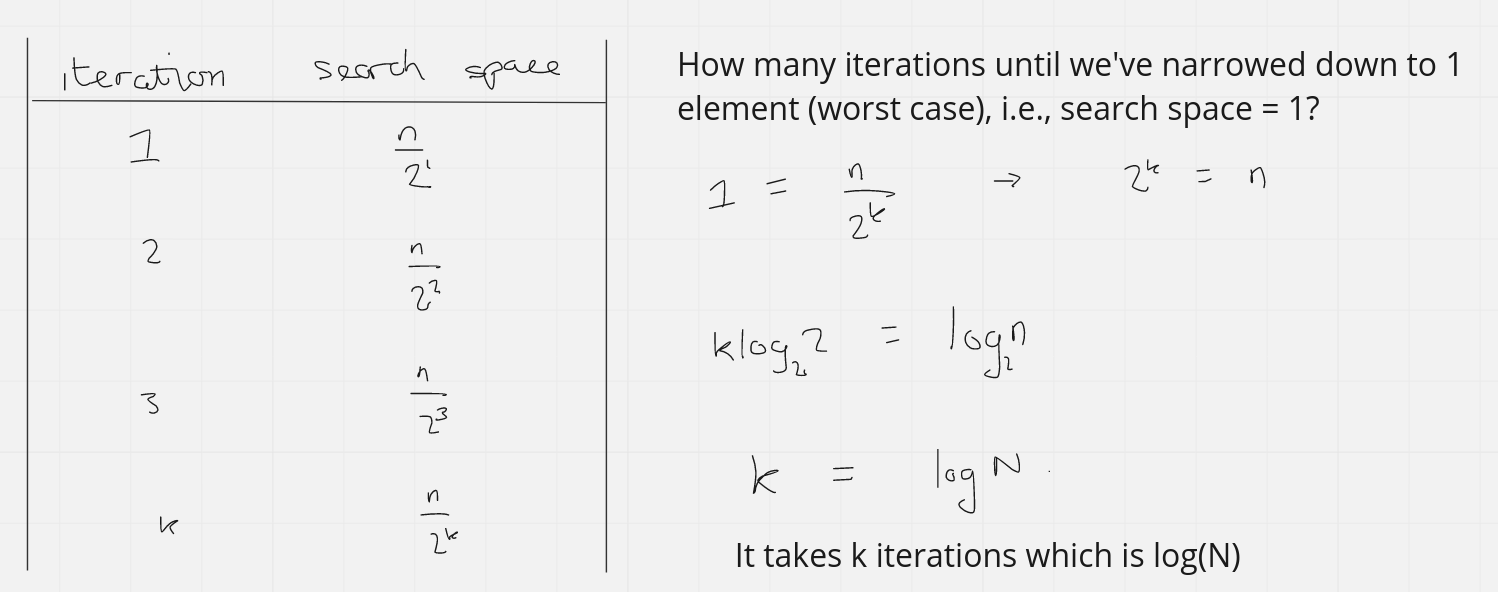 iteration search space
1 n/2¹
2 n/2²
3 n/2³
k n/2ᵏ
How many iterations until we've narrowed down to 1
element (worst case), i.e., search space = 1?
1 = n/2ᵏ → 2ᵏ = n
klog₂2 = log₂n
k = log N
It takes k iterations which is log(N)